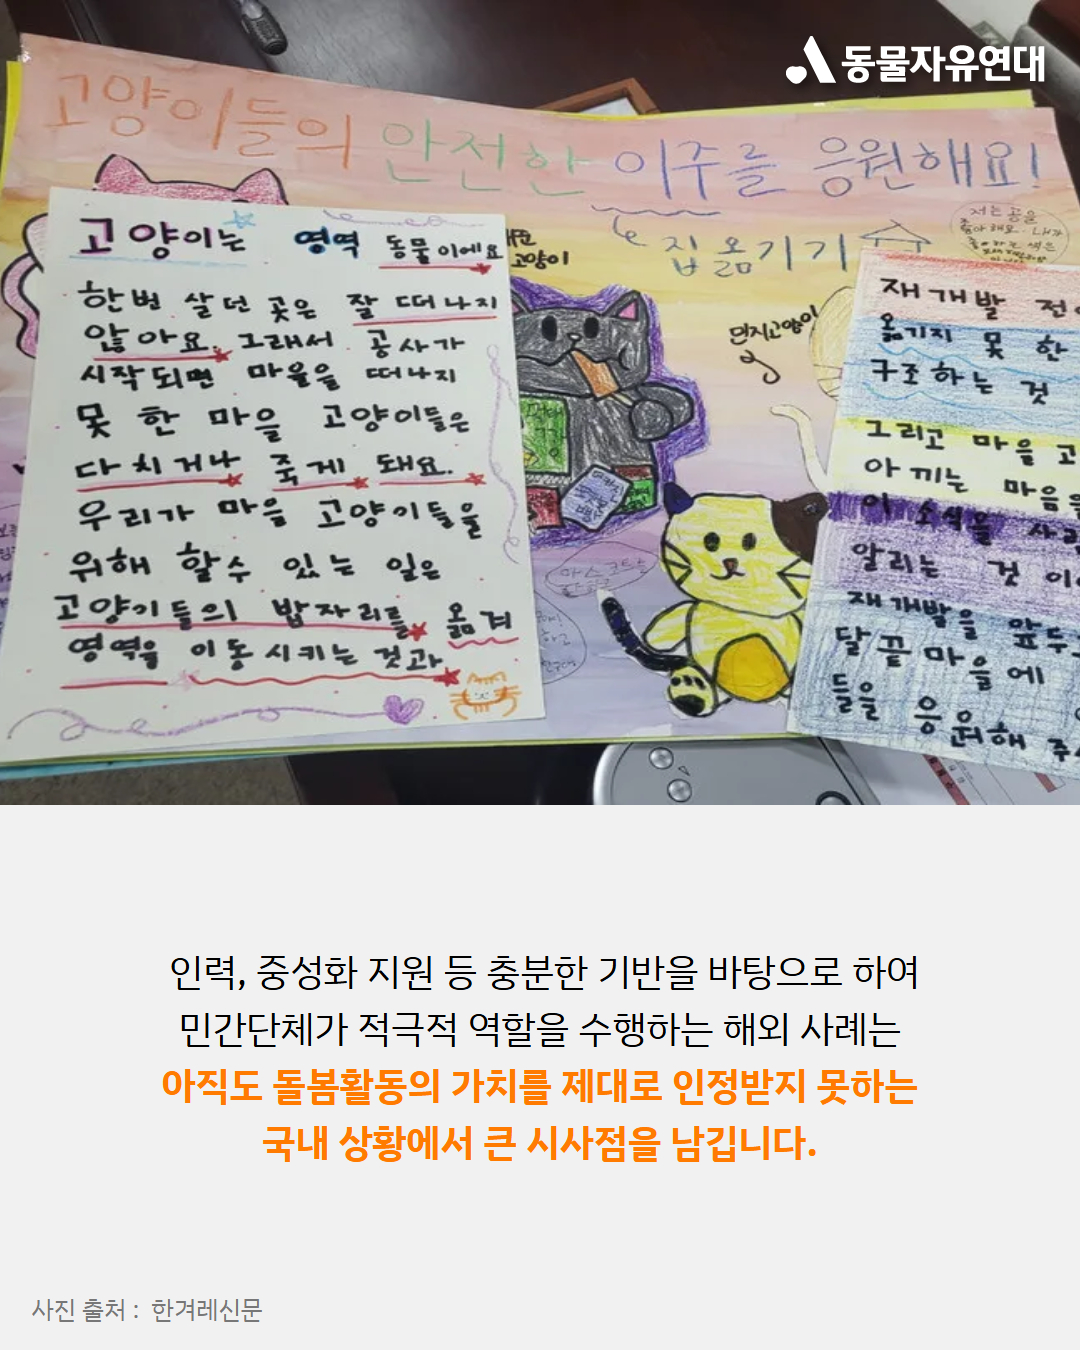 동물자유연대
고양이들의 안전한 이주를 응원해요!
집 옮기기
저는 공을
좋아해요. 내가
고양이
먼지고양이
고양이는 영역 동물이에요
한번 살던 곳은 잘 떠나지
않아요. 그래서 공사가
시작되면 마을을 떠나지
못한 마을 고양이들은
다치거나 죽게 돼요.
우리가 마을 고양이들을
위해 할수 있는 일은
고양이들의 밥자리를 옮겨
영역을 이동시키는 것과
재개발 전
옮기지 못한
구조하는 것
그리고 마을 고
아끼는 마음을
이 소식을 사람
알리는 것이
재개발을 앞두
달끝마을에
들을 응원해 주
인력, 중성화 지원 등 충분한 기반을 바탕으로 하여
민간단체가 적극적 역할을 수행하는 해외 사례는
아직도 돌봄활동의 가치를 제대로 인정받지 못하는
국내 상황에서 큰 시사점을 남깁니다.
사진 출처 : 한겨레신문